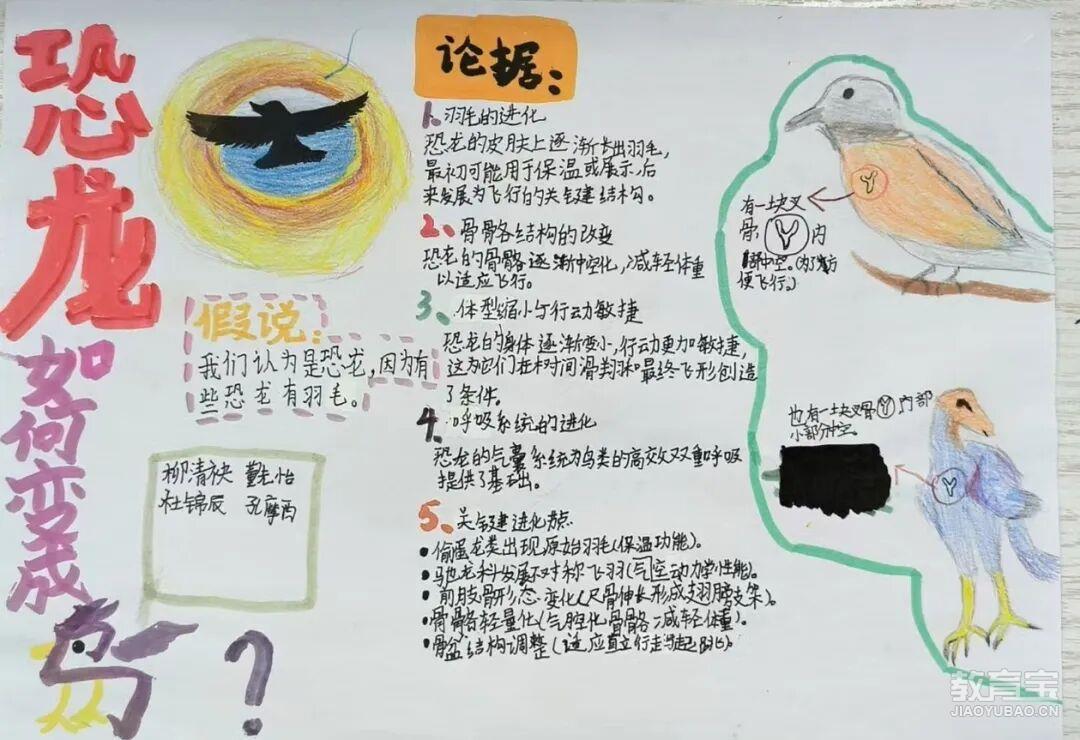 恐龙如何变成鸟？
假说：
我们认为是恐龙,因为有
些恐龙有羽毛。
柳清袂
杜锦辰
论据：
1、羽毛的进化
恐龙的皮肤上逐渐长出羽毛,
最初可能用于保温或展示,后
来发展为飞行的关键建结构。
2、骨骼结构的改变
恐龙的骨骼逐渐中空化,减轻体重
以适应飞行。
3、体型缩小与行动敏捷
恐龙的身体逐渐变小,行动更加敏捷,
这为它们在树间滑翔和最终飞行创造
了条件。
4、呼吸系统的进化
恐龙的气囊系统为鸟类的高效双重呼吸
提供了基础。
5、关键进化节点
•偷蛋龙类出现原始羽毛(保温功能)。
•驰龙科发展不对称飞羽(气空动力学性能)。
•前肢骨形态变化(尺骨伸长形成翅膀支架)。
•骨骼轻量化(气腔化骨骼减轻体重)。
•骨盆结构调整(适应直立行走与起跳)
有一块叉
骨 Y 内
部中空。(为了方
便飞行。)
也有一块叉骨Y内部
小部分中空。
教育宝
JIAOYUBAO.CN